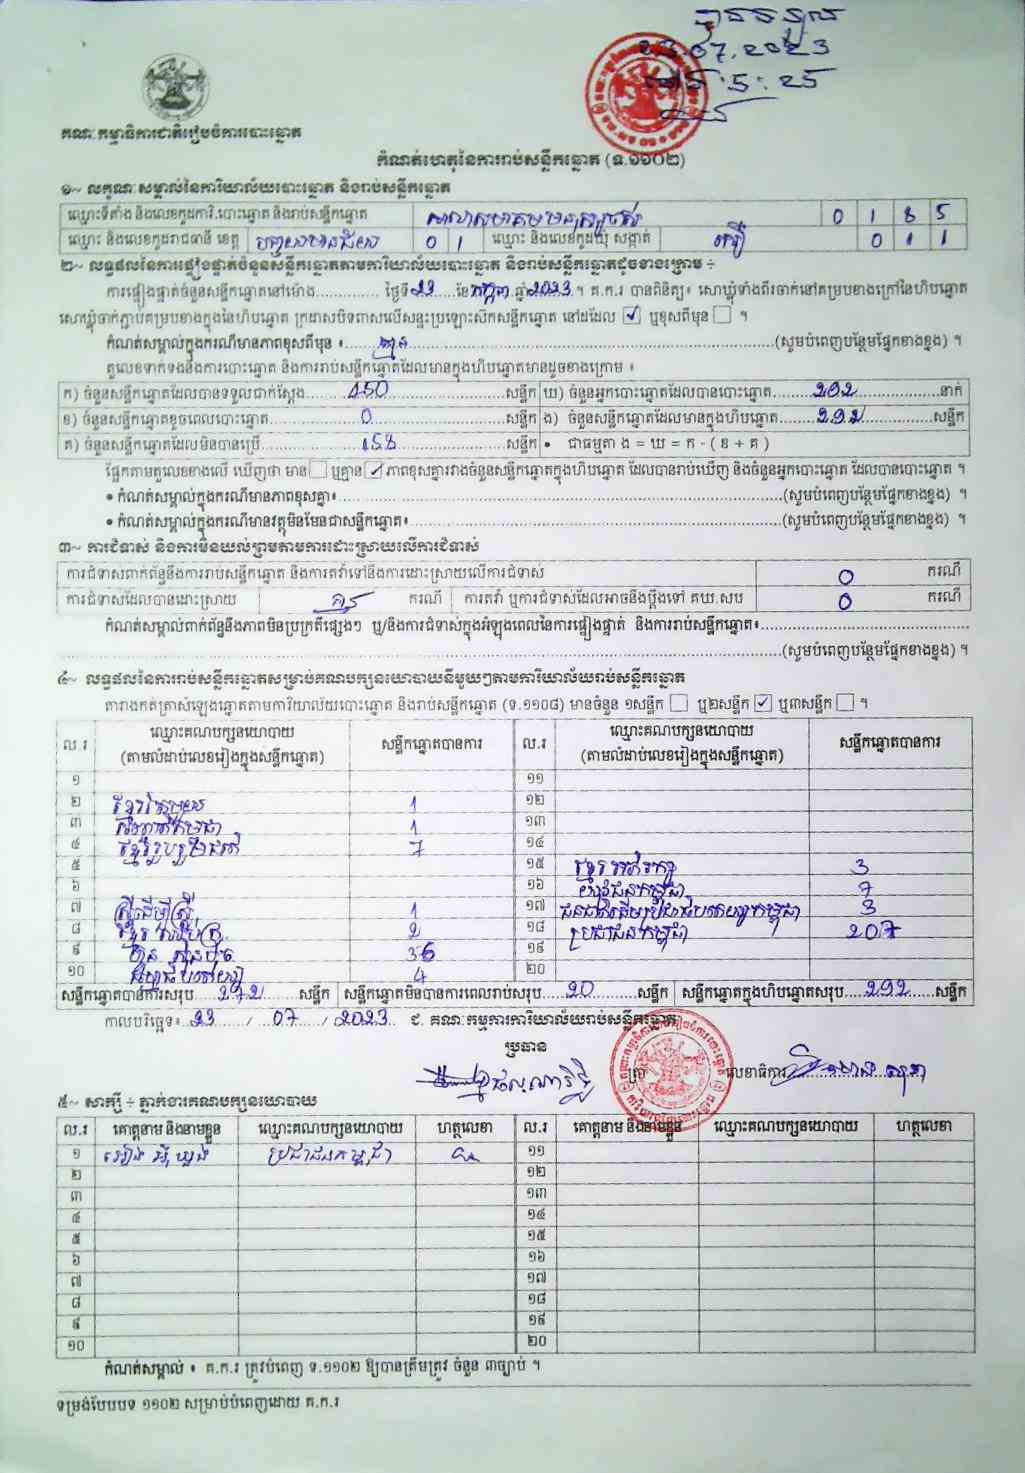 បានទទួល
23.07.2023
ម៉ោង:5:25
គណៈកម្មាធិការជាតិរៀបចំការបោះឆ្នោត
កំណត់ហេតុនៃការរាប់សន្លឹកឆ្នោត (ទ.១១០២)
១~ លក្ខណៈសម្គាល់នៃការិយាល័យបោះឆ្នោត និងរាប់សន្លឹកឆ្នោត
ឈ្មោះទីតាំង និងលេខកូដការិ.បោះឆ្នោត និងរាប់សន្លឹកឆ្នោត 0 1 8 5
ឈ្មោះ និងលេខកូដរាជធានី ខេត្ត បន្ទាយមានជ័យ 0 1 ឈ្មោះ និងលេខកូដឃុំ សង្កាត់ 0 1 1
២~ លទ្ធផលនៃការផ្ទៀងផ្ទាត់ចំនួនសន្លឹកឆ្នោតតាមការិយាល័យបោះឆ្នោត និងរាប់សន្លឹកឆ្នោតដូចខាងក្រោម ÷
ការផ្ទៀងផ្ទាត់ចំនួនសន្លឹកឆ្នោតនៅម៉ោង.............. ថ្ងៃទី 23 ខែ កក្កដា ឆ្នាំ 2023 ។ គ.ក.រ បានពិនិត្យ៖ សោឃ្លុំទាំងពីរចាក់នៅគម្របខាងក្រៅនៃហិបឆ្នោត
សោឃ្លុំចាក់ភ្ជាប់គម្របខាងក្នុងនៃហិបឆ្នោត ក្រដាសបិទពាសលើសន្ទះប្រឡោះស៊កសន្លឹកឆ្នោត នៅដដែល ✓ ឬខុសពីមុន ។
កំណត់សម្គាល់ក្នុងករណីមានភាពខុសពីមុន ៖ គ្មាន (សូមបំពេញបន្ថែមផ្នែកខាងខ្នង) ។
តួលេខទាក់ទងនឹងការបោះឆ្នោត និងការរាប់សន្លឹកឆ្នោតដែលមានក្នុងហិបឆ្នោតមានដូចខាងក្រោម ៖
ក) ចំនួនសន្លឹកឆ្នោតដែលបានទទួលជាក់ស្តែង 450 សន្លឹក ឃ) ចំនួនអ្នកបោះឆ្នោតដែលបានបោះឆ្នោត 292 នាក់
ខ) ចំនួនសន្លឹកឆ្នោតខូចពេលបោះឆ្នោត 0 សន្លឹក ង) ចំនួនសន្លឹកឆ្នោតដែលមានក្នុងហិបឆ្នោត 292 សន្លឹក
គ) ចំនួនសន្លឹកឆ្នោតដែលមិនបានប្រើ 158 សន្លឹក • ជាធម្មតា ង = ឃ = ក - ( ខ + គ )
ផ្អែកតាមតួលេខខាងលើ ឃើញថា មាន ឬគ្មាន ✓ ភាពខុសគ្នារវាងចំនួនសន្លឹកឆ្នោតក្នុងហិបឆ្នោត ដែលបានរាប់ឃើញ និងចំនួនអ្នកបោះឆ្នោត ដែលបានបោះឆ្នោត ។
• កំណត់សម្គាល់ក្នុងករណីមានភាពខុសគ្នា៖ (សូមបំពេញបន្ថែមផ្នែកខាងខ្នង) ។
• កំណត់សម្គាល់ក្នុងករណីមានវត្ថុមិនមែនជាសន្លឹកឆ្នោត៖ (សូមបំពេញបន្ថែមផ្នែកខាងខ្នង) ។
៣~ ការជំទាស់ និងការមិនយល់ព្រមតាមការដោះស្រាយលើការជំទាស់
ការជំទាស់ពាក់ព័ន្ធនឹងការរាប់សន្លឹកឆ្នោត និងការតវ៉ាទៅនឹងការដោះស្រាយលើការជំទាស់ 0 ករណី
ការជំទាស់ដែលបានដោះស្រាយ ករណី ការតវ៉ា ឬការជំទាស់ដែលអាចនឹងប្តឹងទៅ គឃ.សប 0 ករណី
កំណត់សម្គាល់ពាក់ព័ន្ធនឹងភាពមិនប្រក្រតីផ្សេងៗ ឬ/និងការជំទាស់ក្នុងអំឡុងពេលនៃការផ្ទៀងផ្ទាត់ និងការរាប់សន្លឹកឆ្នោត៖
(សូមបំពេញបន្ថែមផ្នែកខាងខ្នង) ។
៤~ លទ្ធផលនៃការរាប់សន្លឹកឆ្នោតសម្រាប់គណបក្សនយោបាយនីមួយៗតាមការិយាល័យរាប់សន្លឹកឆ្នោត
តារាងកត់ត្រាសំឡេងឆ្នោតតាមការិយាល័យបោះឆ្នោត និងរាប់សន្លឹកឆ្នោត (ទ.១១០៨) មានចំនួន ១សន្លឹក ឬ២សន្លឹក ✓ ឬ៣សន្លឹក ។
ល.រ ឈ្មោះគណបក្សនយោបាយ (តាមលំដាប់លេខរៀងក្នុងសន្លឹកឆ្នោត) សន្លឹកឆ្នោតបានការ ល.រ ឈ្មោះគណបក្សនយោបាយ (តាមលំដាប់លេខរៀងក្នុងសន្លឹកឆ្នោត) សន្លឹកឆ្នោតបានការ
១ ១១
២ 1 ១២
៣ 1 ១៣
៤ 7 ១៤
៥ ១៥ 3
៦ ១៦ យុវជនកម្ពុជា 7
៧ ស្ត្រីដើម្បីស្ត្រី 1 ១៧ 3
៨ 2 ១៨ ប្រជាជនកម្ពុជា 207
៩ 36 ១៩
១០ 4 ២០
សន្លឹកឆ្នោតបានការសរុប 272 សន្លឹក សន្លឹកឆ្នោតមិនបានការពេលរាប់សរុប 20 សន្លឹក សន្លឹកឆ្នោតក្នុងហិបឆ្នោតសរុប 292 សន្លឹក
កាលបរិច្ឆេទ៖ 23 / 07 / 2023 ជ. គណៈកម្មការការិយាល័យរាប់សន្លឹកឆ្នោត
ប្រធាន
ត្រា លេខាធិការ
៥~ សាក្សី ÷ ភ្នាក់ងារគណបក្សនយោបាយ
ល.រ គោត្តនាម និងនាមខ្លួន ឈ្មោះគណបក្សនយោបាយ ហត្ថលេខា ល.រ គោត្តនាម និងនាមខ្លួន ឈ្មោះគណបក្សនយោបាយ ហត្ថលេខា
១ ប្រជាជនកម្ពុជា ១១
២ ១២
៣ ១៣
៤ ១៤
៥ ១៥
៦ ១៦
៧ ១៧
៨ ១៨
៩ ១៩
១០ ២០
កំណត់សម្គាល់ ៖ គ.ក.រ ត្រូវបំពេញ ទ.១១០២ ឱ្យបានត្រឹមត្រូវ ចំនួន ៣ច្បាប់ ។
ទម្រង់បែបបទ ១១០២ សម្រាប់បំពេញដោយ គ.ក.រ